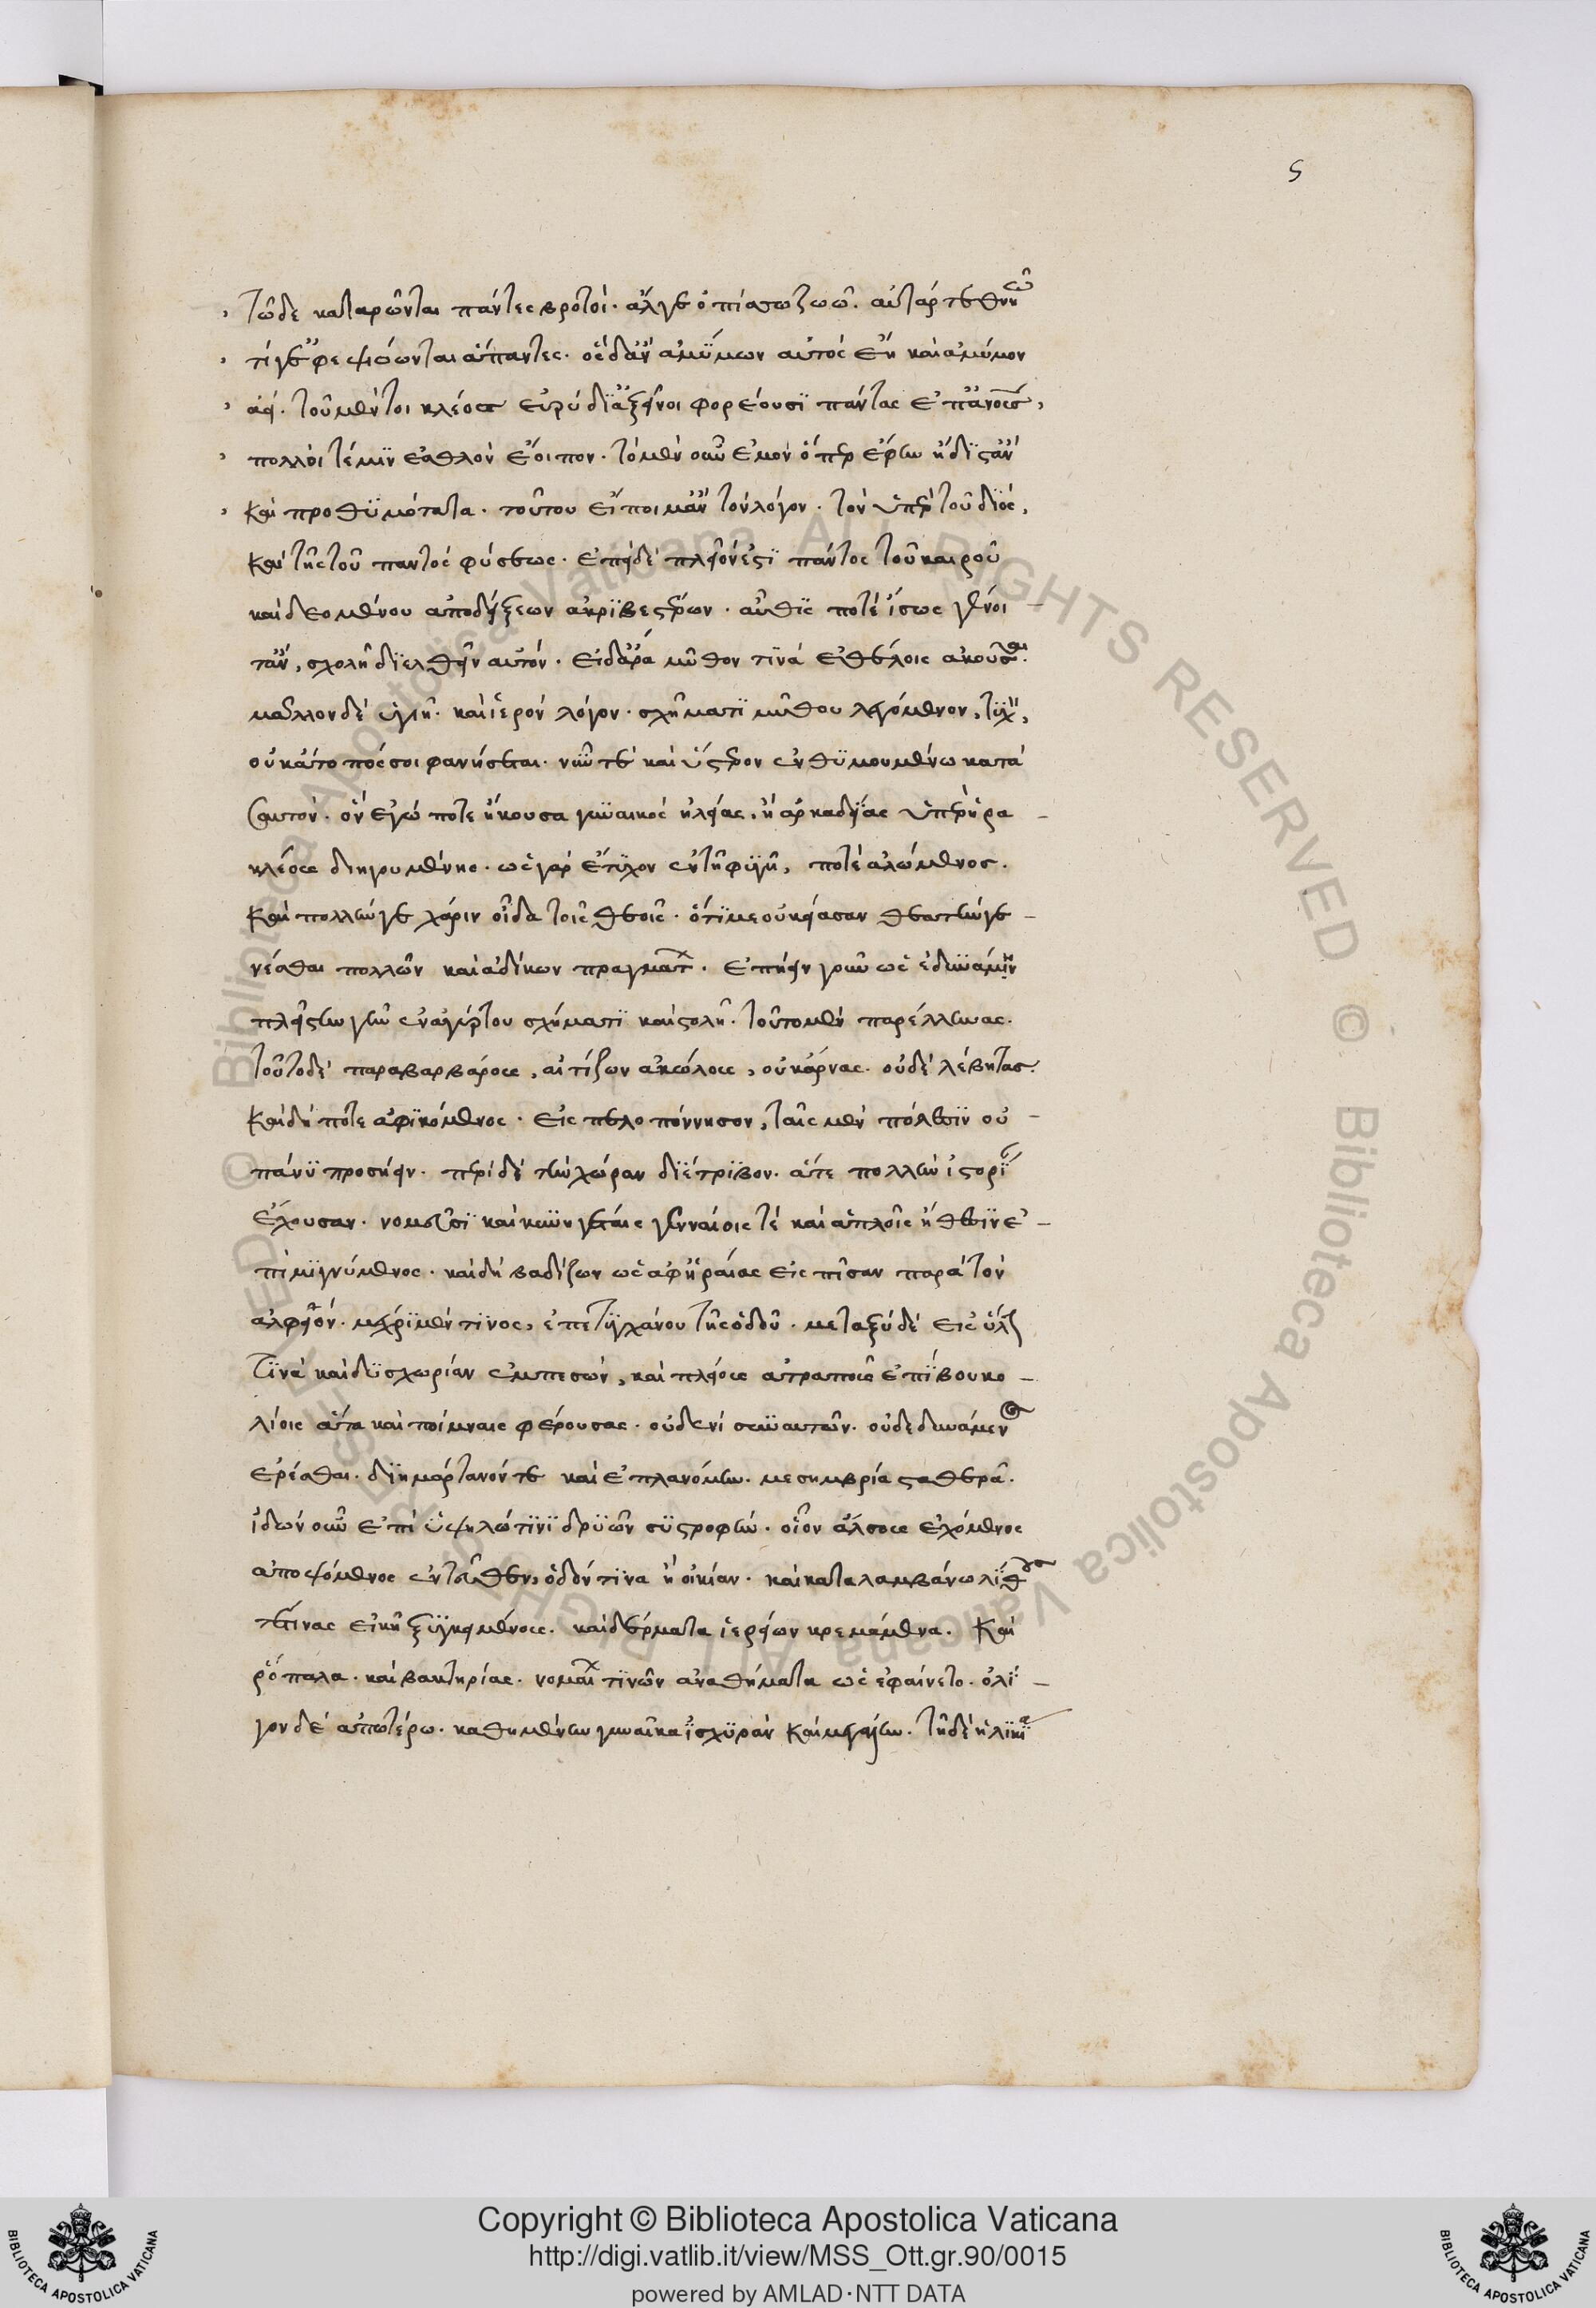 5
τῶδε καταρῶνται πάντες βροτοὶ. ἄλγε᾽ ὀπίσσω ζωῶ. ἀτὰρ τεθνη^ῶ
τί γε ἐφεψιόωνται ἅπαντες. ὃς δ᾽ ἂν ἀμύμων αὐτὸς ἔῃ καὶ ἀμύμον
εἰδῇ. τοῦ μέντοι κλέος εὐρὺ διὰ ξεῖνοι φορέουσι πάντας ἐπ᾽ ἀνους,
πολλοί τέ μιν ἐσθλὸν ἔειπον. τὸ μὲν οὖν ἐμὸν ὅπερ ἔφην ἥδιστ᾽ ἂν
καὶ προθυμότατα. τοῦτον εἴποιμ᾽ ἂν τὸν λόγον. τὸν ὑπὲρ τοῦ διὸς,
καὶ τῆς τοῦ παντὸς φύσεως. ἐπεὶ δὲ πλείον ἐστὶ παντὸς τοῦ καιροῦ
καὶ δεομένου ἀποδείξεων ἀκριβεστέρων. αὖθις ποτὲ ἴσως γένοι -
τ᾽ ἂν, σχολὴ διελθεῖν αὐτὸν. εἰ δ᾽ ἄρα μῦθον τινὰ ἐθέλοις ἀκοῦσαι.
μᾶλλον δὲ ὑγιῆ. καὶ ἱερὸν λόγον. σχήματι μύθου λεγόμενον, τυχ,
οὐκ ἄτοπος σοι φανήσεται. νῦν τε καὶ ὕστερον ἐνθυμουμένω κατὰ
σαυτὸν. ὃν ἐγώ ποτε ἤκουσα γυναικὸς ἠλείας, ἢ ἀρκαδείας ὑπὲρ ἡρα -
κλέος διηγουμένης. ὡς γὰρ ἔτυχον ἐν τῆ φυγῆ, ποτὲ ἀλώμενος.
καὶ πολλήν γε χάριν οἶδα τοῖς θεοῖς. ὅτι με οὐκ εἴασαν θεατὴν γε -
νέσθαι πολλῶν καὶ ἀδίκων πραγμάτ. ἐπῄειν γοῦν ὡς ἐδυνάμην
πλείστην γῆν ἐν ἀγύρτου σχήματι καὶ στολῆ. τοῦτο μὲν παρ᾽ ἕλληνας.
τοῦτο δὲ παρὰ βαρβάροις, αἰτίζων ἀκόλους, οὐκ ἄορας. οὐδὲ λέβητας.
καὶ δή ποτε ἀφικόμενος. εἰς πελοπόννησον, ταῖς μὲν πόλεσιν οὐ -
πάνυ προσῄειν. περὶ δὲ τὴν χώραν διέτριβον. ἅτε πολλὴν ἱστορί
ἔχουσαν. νομεῦσι καὶ κυνηγέταις γενναίοις τὲ καὶ ἁπλοῖς ἤθεσιν ἐ -
πιμιγνύμενος. καὶ δὴ βαδίζων ὡς ἀφ᾽ ἡραίας εἰς πῖσαν παρὰ τὸν
ἀλφειόν. μέχρι μὲν τινος, ἐπετύγχανον τῆς ὁδοῦ. μεταξὺ δὲ εἰς ὕλην
τινὰ καὶ δυσχωρίαν ἐμπεσὼν, καὶ πλείους ἀτραποὺς ἐπὶ βουκο -
λίοις ἄττα καὶ ποίμναις φερούσας. οὐδενὶ συναντῶν. οὐδὲ δυνάμενος
ἐρέσθαι. διημάρτανόν τε καὶ ἐπλανόμην. μεσημβρία σταθερᾶ.
ἰδὼν οὖν ἐπὶ ὑψηλῶ τινι δρυῶν συστροφὴν. οἷον ἄλσος ἐχόμενος
ἀποψόμενος ἐντεῦθεν, ὁδόν τινα ἢ οἰκίαν. καὶ καταλαμβάνω λίθους
τέ τινας εἰκῆ ξυγκειμένους. καὶ δέρματα ἱερείων κρεμάμενα. καὶ
ῥόπαλα. καὶ βακτηρίας. νομέων τινῶν ἀναθήματα ὡς ἐφαίνετο. ὀλί -
γον δὲ ἀπωτέρω. καθημένην γυναῖκα ἰσχυρὰν καὶ μεγάλην. τῆ δὲ ἡλικία
Copyright © Biblioteca Apostolica Vaticana
http://digi.vatlib.it/view/MSS_Ott.gr.90/0015
powered by AMLAD·NTT DATA